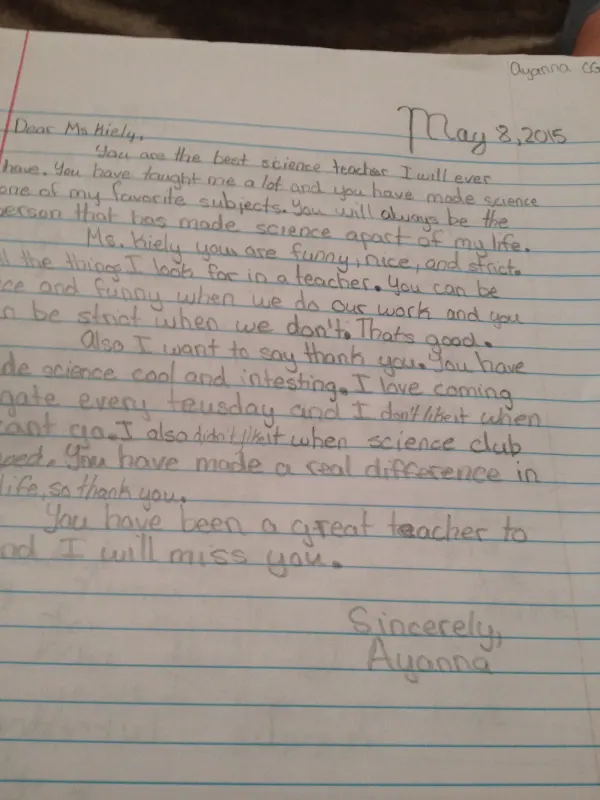 Ayanna CG
May 8, 2015
Dear Ms. Kiely,
You are the best science teacher I will ever
have. You have taught me a lot and you have made science
one of my favorite subjects. You will always be the
person that has made science apart of my life.
Ms. Kiely you are funny, nice, and strict.
ll the things I look for in a teacher. You can be
ce and funny when we do our work and you
n be strict when we don't. Thats good.
Also I want to say thank you. You have
de science cool and intesting. I love coming
gate every teusday and I don't like it when
cant go. I also didn't like it when science club
ed. You have made a real difference in
life, so thank you.
You have been a great teacher to
nd I will miss you.
Sincerely,
Ayanna